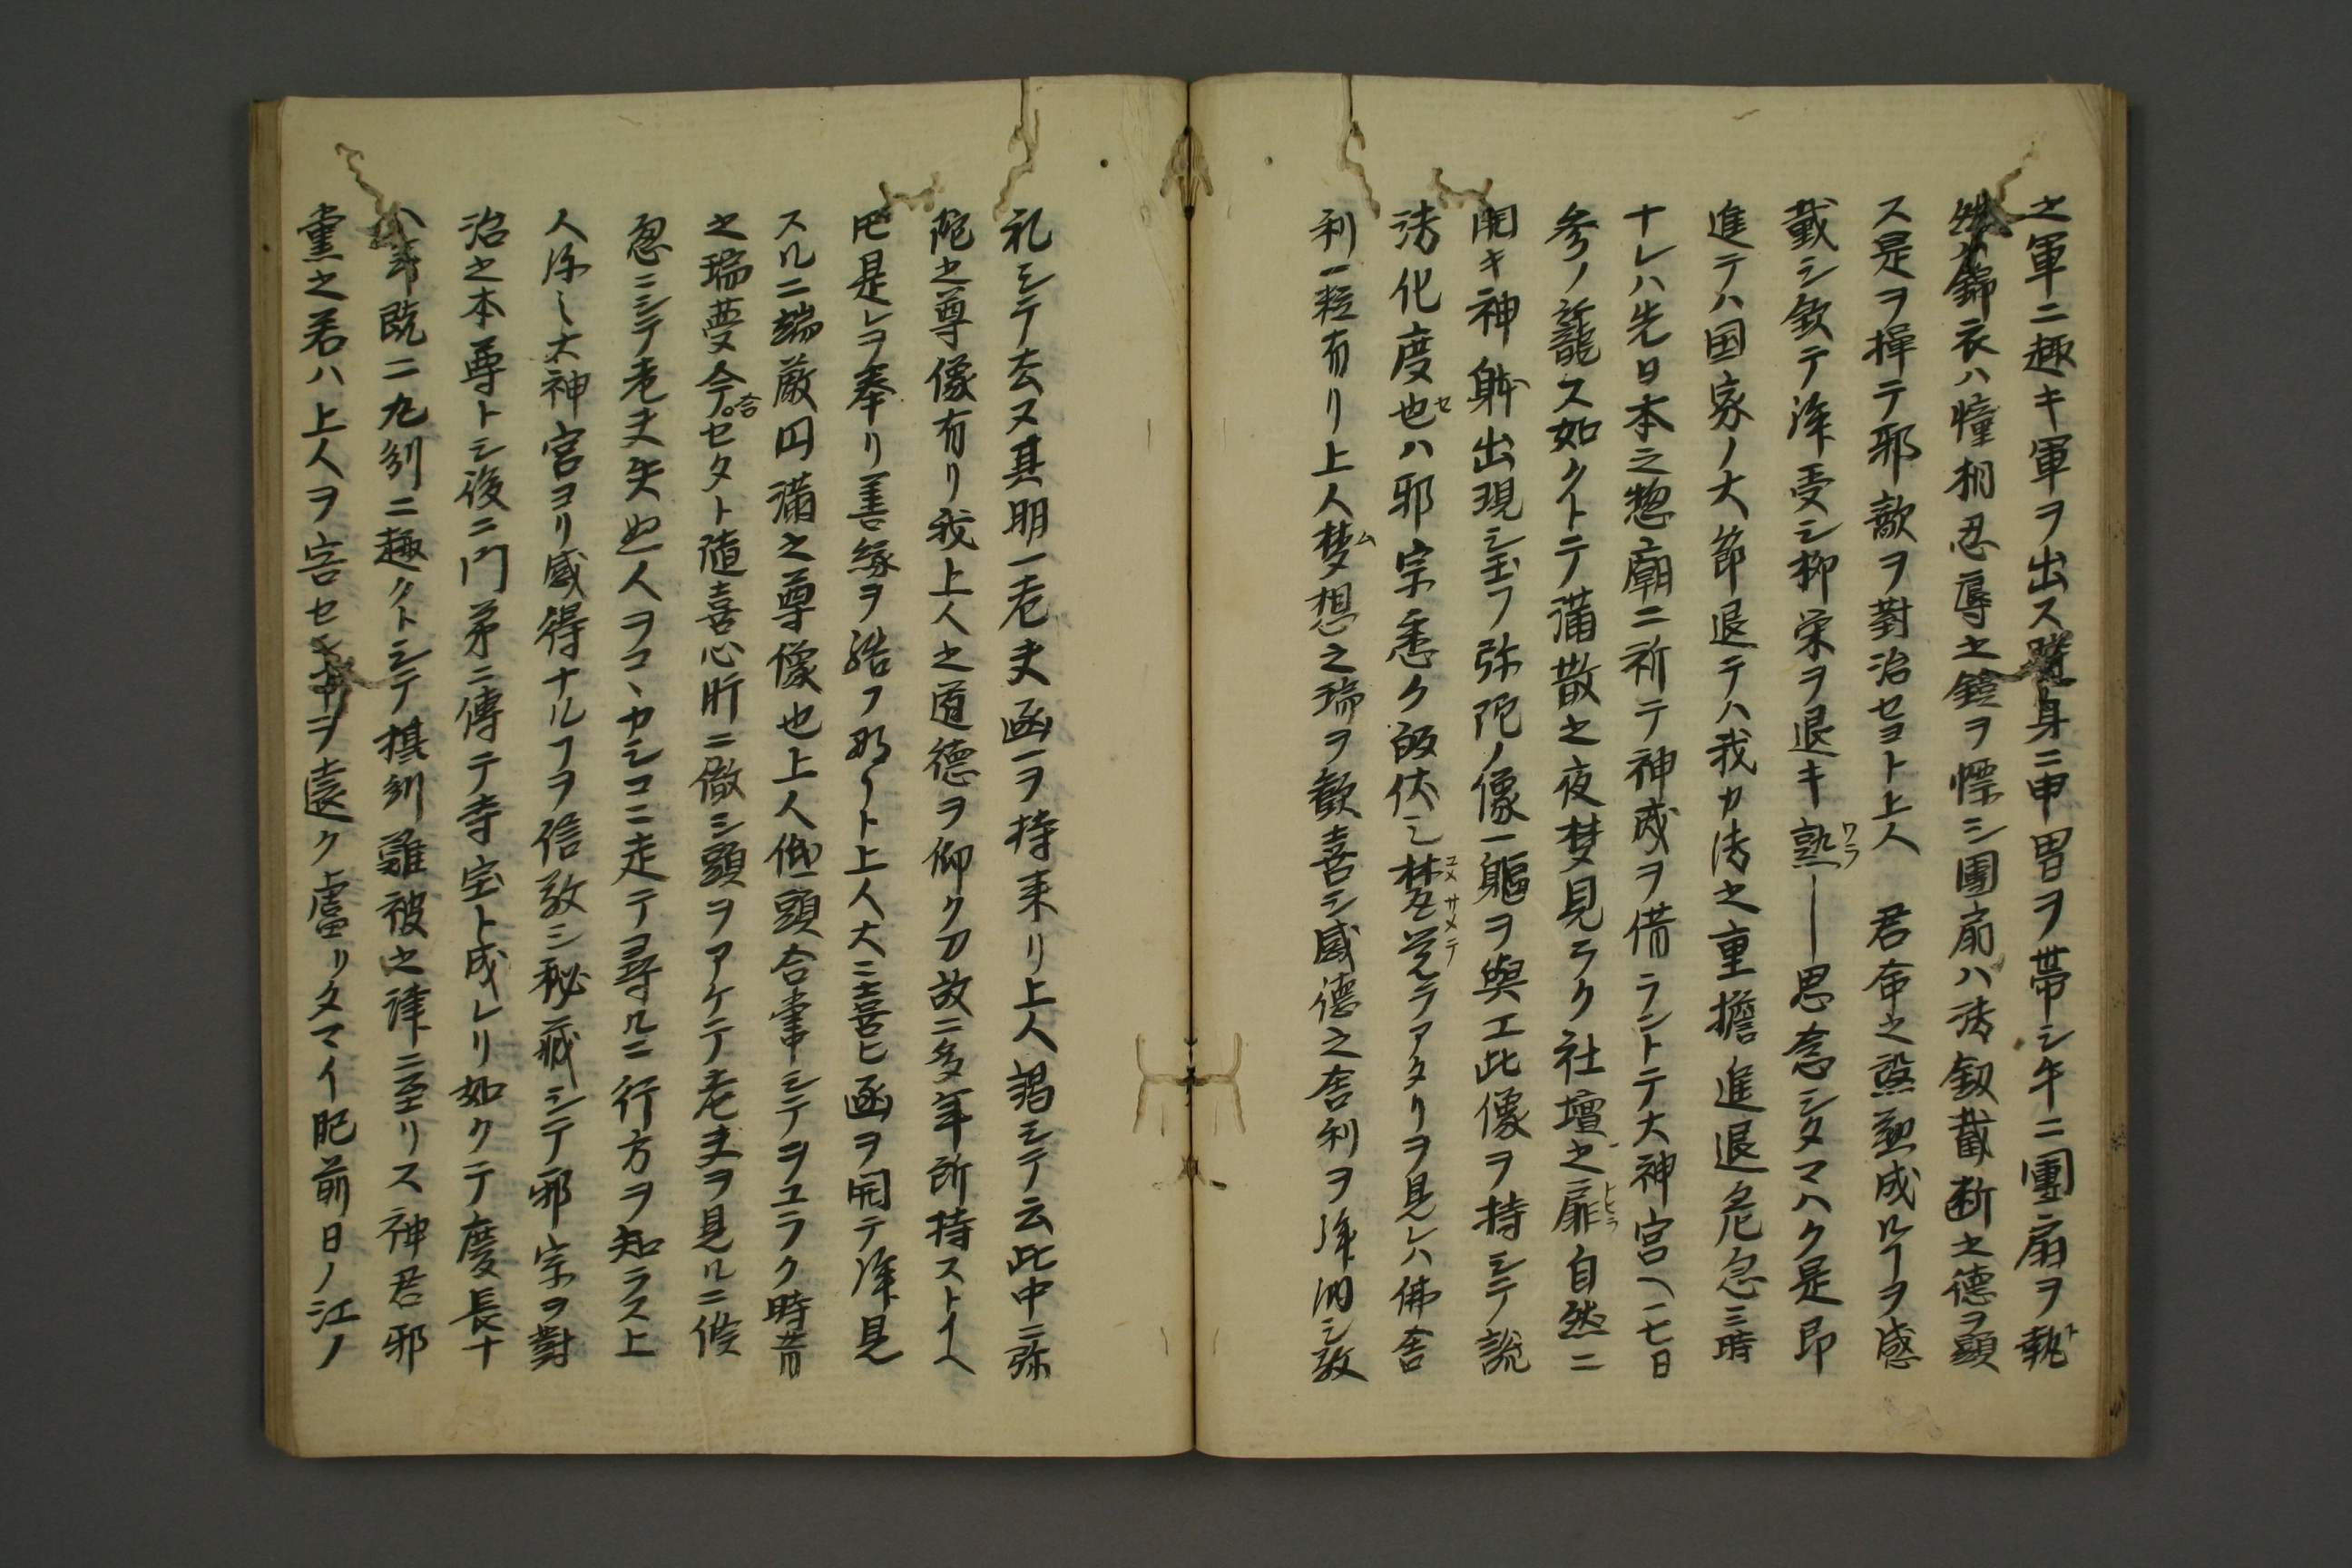 之軍ニ趣キ軍ヲ出ス躋身ニ甲冑ヲ帯シ午ニ團扇ヲ執
錦衣ハ幢相忍辱之鎧ヲ慓シ團扇ハ法釼截断之德ヲ顕
ス是ヲ揮テ邪敵ヲ對治セヨト上人　君命之慇懃成ルヿヲ感
戴シ欽テ拝受シ柳栄ヲ退キ熟〱思念シタマハク是即
進テハ国家ノ大節退テハ我カ法之重擔進退危急ニ時
ナレハ先日本之惣廟ニ祈テ神威ヲ借ラントテ大神宮ヘ一七日
参ノ籠ス如クトテ満散之夜梦見ラク社壇之扉自然ニ
開キ神躰出現シ玉フ弥陀ノ像一軀ヲ與エ此像ヲ持シテ説
法化度也ハ邪宗悉ク皈伏シ梦覚テアタリヲ見レハ佛舎
利一粒有リ上人梦想之瑞ヲ歓喜シ感德之舎利ヲ拝納シ敬
礼シテ去又其明一老夫函一ヲ持来リ上人謁シテ云此中ニ弥
陀之尊像有リ我上人之道德ヲ仰ク刀故ニ多年所持ストイヘ
𪜈是レヲ奉リ善縁ヲ結フト上人大ニ喜ヒ函ヲ開テ拝見
スルニ端厳円満之尊像也上人低頭合掌シテヲユラク時昔
之瑞夢今合セタト随喜心肝ニ徹シ頭ヲアケテ老夫ヲ見ルニ倐
忽ニシテ老夫失也人ヲコヽカシコニ走テ尋ルニ行方ヲ知ラス上
人深ク大神宮ヨリ感得ナルヿヲ信敬シ秘藏シテ邪宗ヲ對
治之本尊トシ後ニ門弟ニ傳テ寺宝ト成レリ如クテ慶長十
八年既ニ九州ニ趣クトシテ摂州難波之津ニ至リス神君邪
黨之若ハ上人ヲ害セヲ遠ク慮リタマイ肥前日ノ江ノ